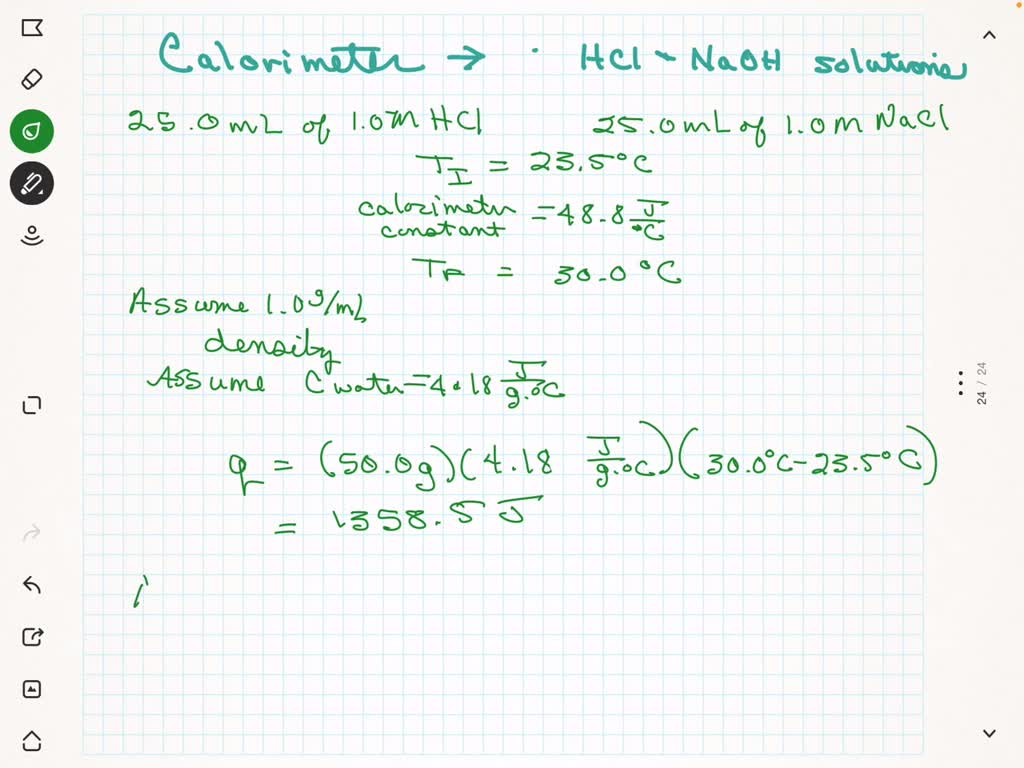 Calorimeter → HCl - NaOH solutions
25.0 mL of 1.0 M HCl 25.0 mL of 1.0 M NaCl
T_I = 23.5°C
calorimeter constant = 48.8 J/°C
T_F = 30.0°C
Assume 1.0 g/mL
density
Assume C water = 4.18 J/g·°C
q = (50.0g)(4.18 J/g·°C)(30.0°C - 23.5°C)
= 1358.5 J
24 / 24